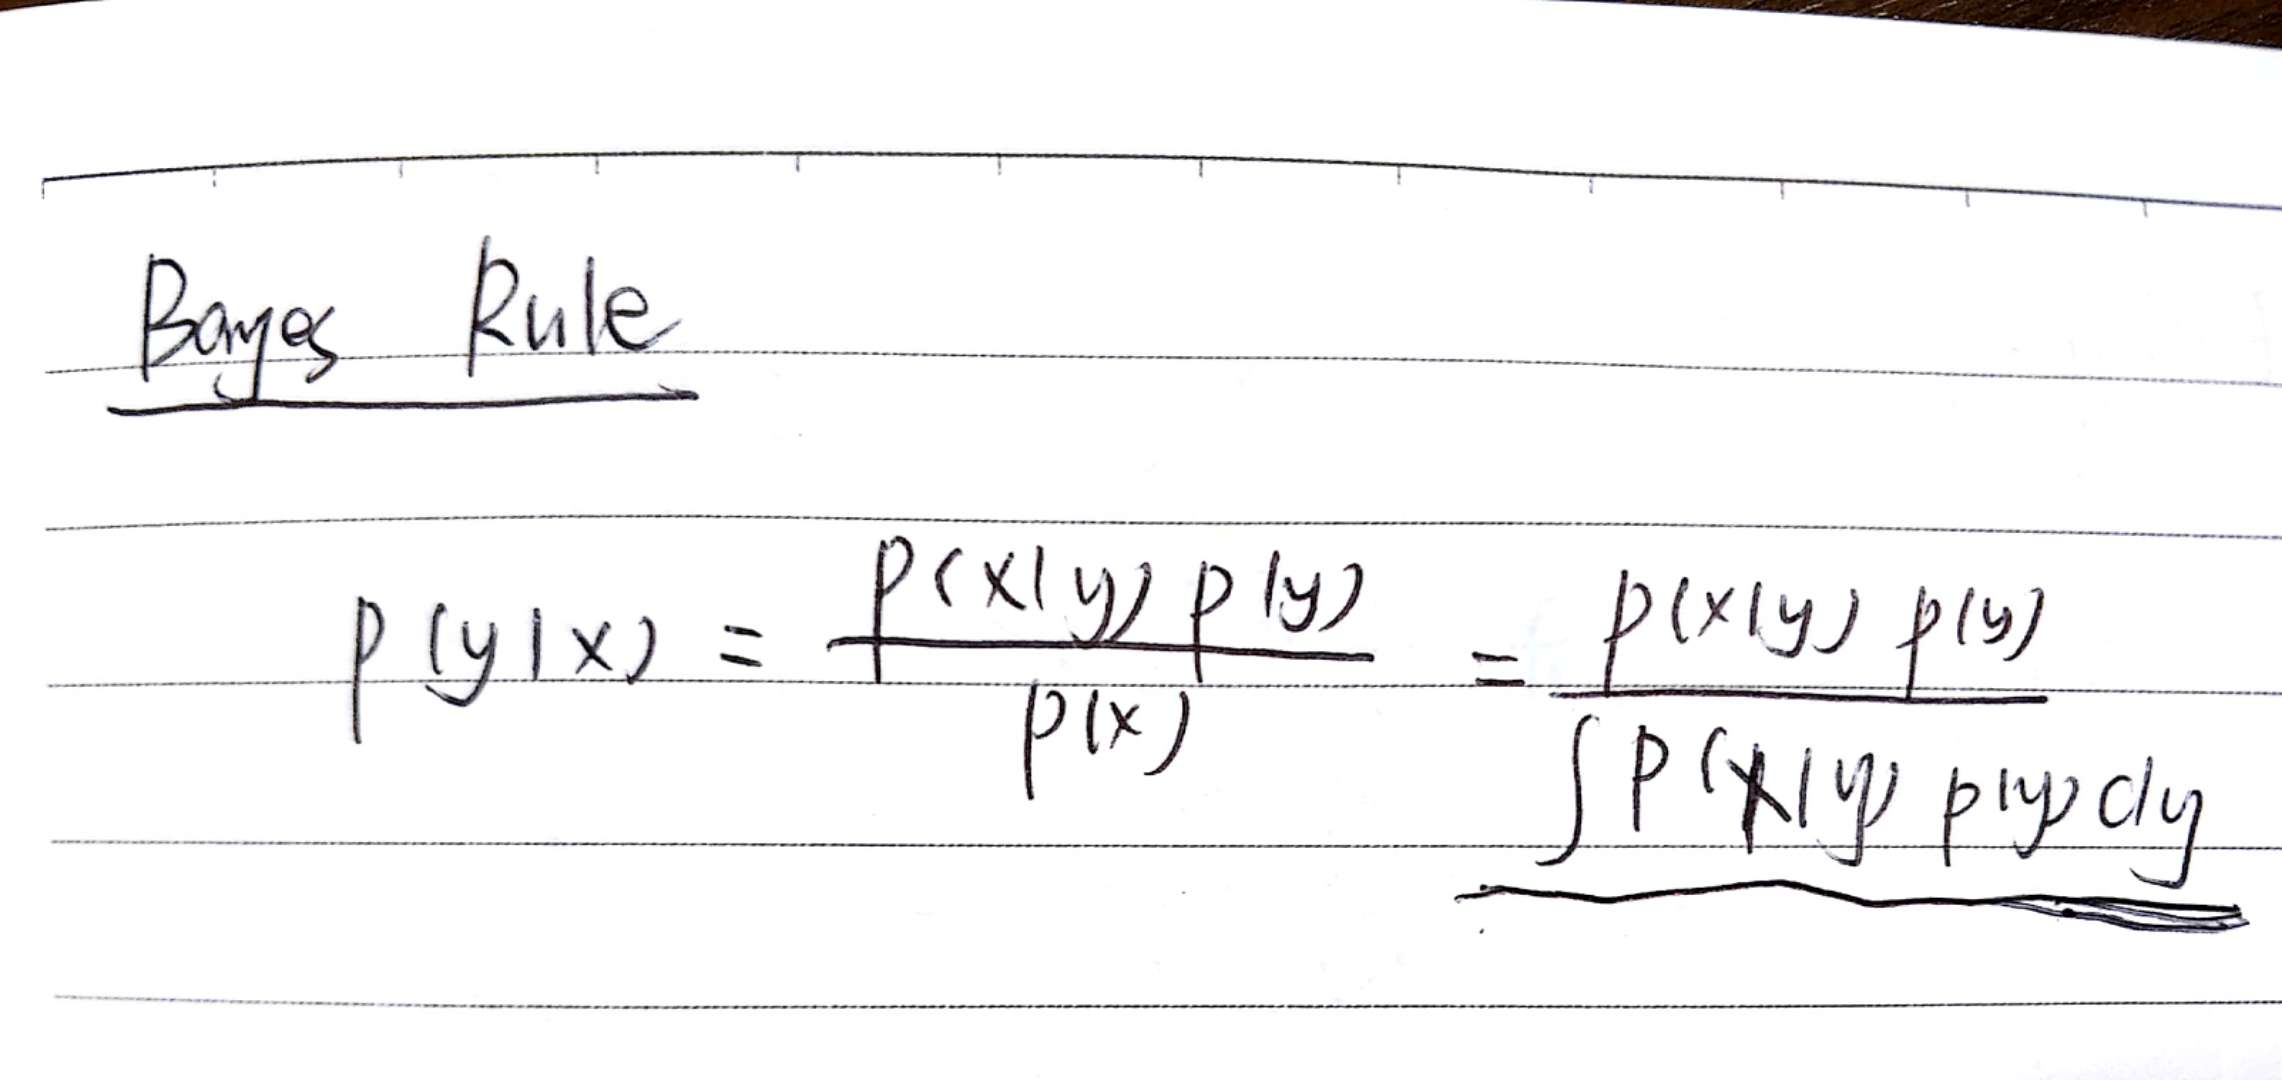 Bayes Rule
p(y|x) = p(x|y) p(y) / p(x) = p(x|y) p(y) / ∫ p(x|y) p(y) dy